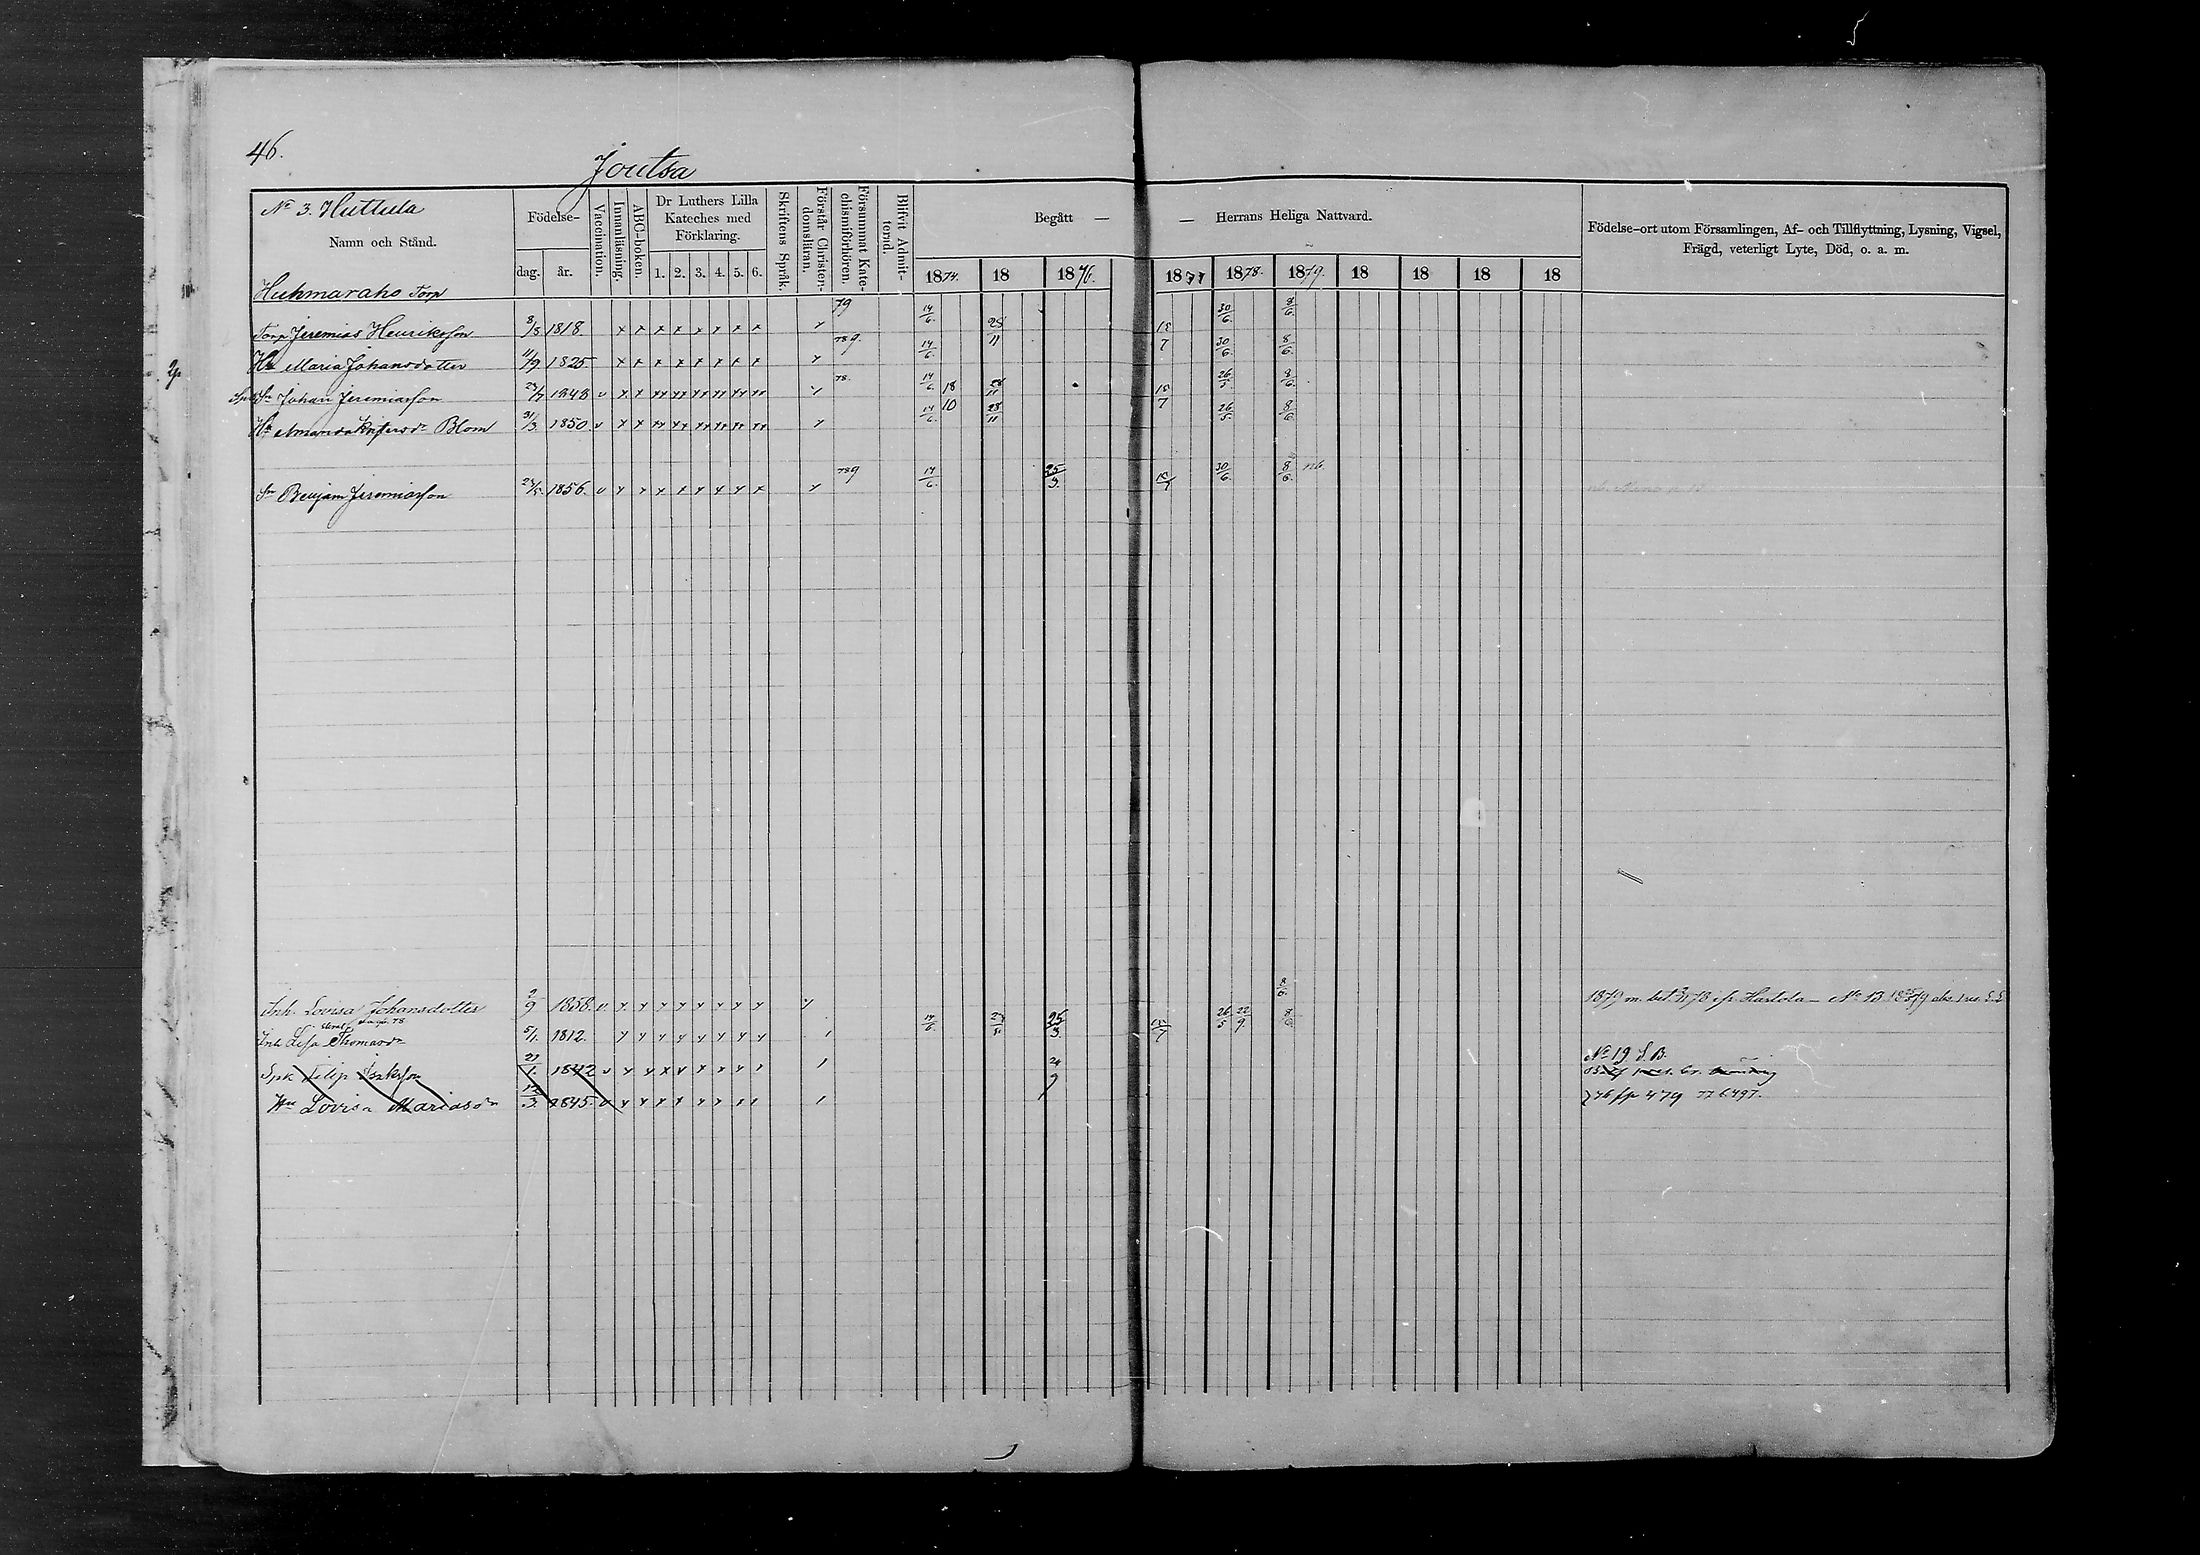 46.
Joutsa
No 3. Huttula
Namn och Stånd.
Födelse-
dag. år.
Vaccination.
Innanläsning.
ABC-boken.
Dr Luthers Lilla Kateches med Förklaring.
1. 2. 3. 4. 5. 6.
Skriftens Språk.
Förstår Christendomsläran.
Försummat Katechismiförhören.
Blifvit Admitterad.
Begått — — Herrans Heliga Nattvard.
1874. 18 1876. 1877 1878. 1879. 18 18 18 18
Födelse-ort utom Församlingen, Af- och Tillflyttning, Lysning, Vigsel,
Frägd, veterligt Lyte, Död, o. a. m.
Huhmaraho Torp
Torp Jeremias Henriksson 8/8 1818 x x x x x x x x x 79 14/6. 28/11 15/7 30/6. 8/6.
Hu Maria Johansdotter 11/9 1825 x x x x x x x x x 789. 14/6. 30/6. 8/6.
Sn Johan Jeremiasson 1848 v x x xx xx xx xx xx xx 78. 14/6. 18/10 28/11 15/7 26/5. 8/6.
Hu Amanda Blom 31/3. 1850. v x x xx xx xx xx xx xx 14/6. 28/11 26/5 8/6
Sn Benjam Jeremiasson 24/5. 1856. v x x x x x x x x 789 14/6. 25/3. 15/7 30/6. 8/6. nb.
Inh. Lovisa Johansdotter 2/9 1858. v x x x x x x x x 8/6. 1879 m. bet. 78 i fr Hartola No 13
Inh Lisa Thomasdr 5/1. 1812. x x x x x x x x 14/6. 25/3. 15/7 26/5 22/9. 8/6
Spk Filip Isaksson 21/1. 1842 v No 19 S. B.
Hu Lovisa Mariasdr 12/3. 1845. v 76 fp 479